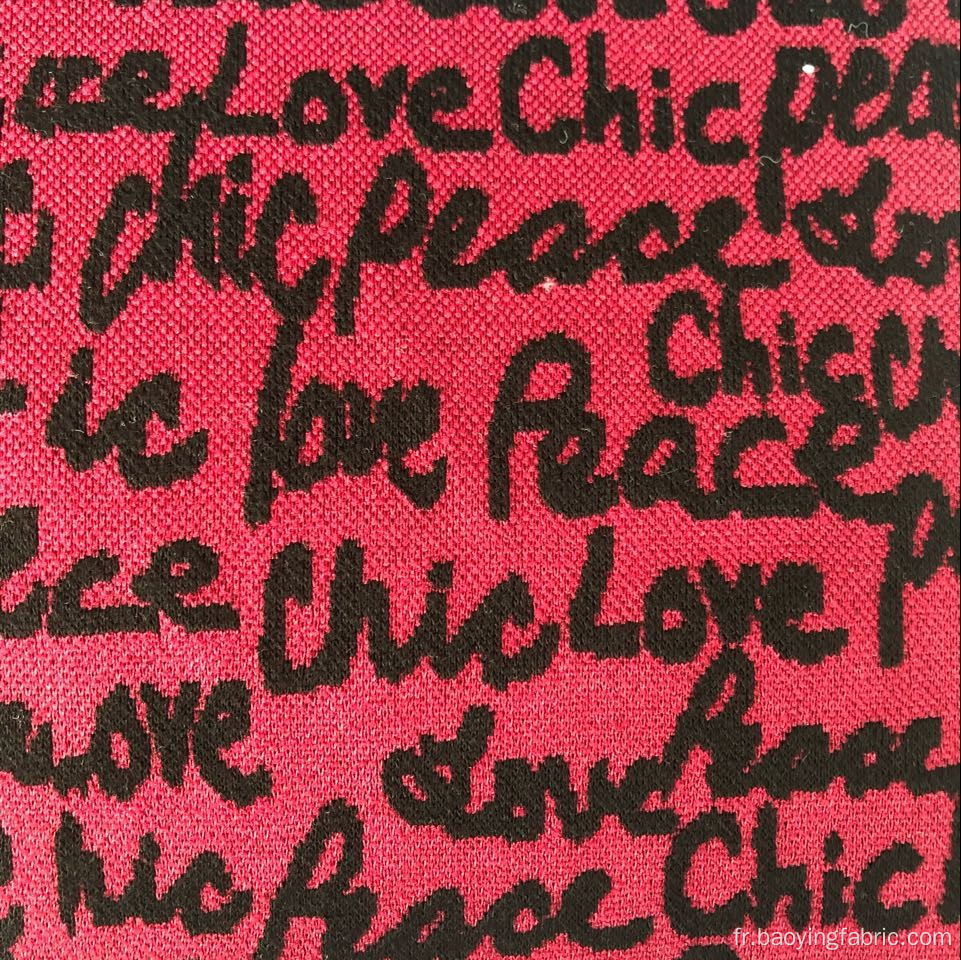 Love Chic Pea
Chic Peace Lo
Chic
ic Love Peace
ce Chic Love P
Love Love Peace
hic Peace Chic
fr.baoyingfabric.com